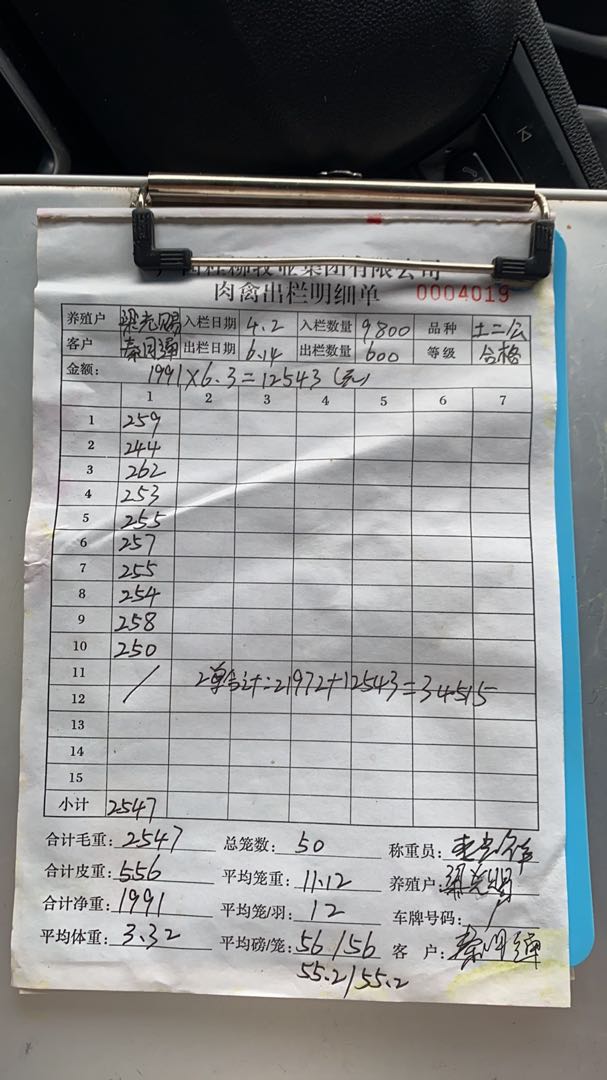 牧业集团有限公司
肉禽出栏明细单 0004019
养殖户 梁光赐 入栏日期 4.2 入栏数量 9800 品种 土二公
客户 秦同通 出栏日期 6.14 出栏数量 600 等级 合格
金额: 1991×6.3=12543(元)
1 2 3 4 5 6 7
1 259
2 244
3 262
4 253
5 255
6 257
7 255
8 254
9 258
10 250
11 2单合计:21972+12543=34515
12
13
14
15
小计 2547
合计毛重: 2547 总笼数: 50 称重员:
合计皮重: 556 平均笼重: 11.12 养殖户: 梁光赐
合计净重: 1991 平均笼/羽: 12 车牌号码: /
平均体重: 3.32 平均磅/笼: 56/56 客 户: 秦同通
55.2/55.2